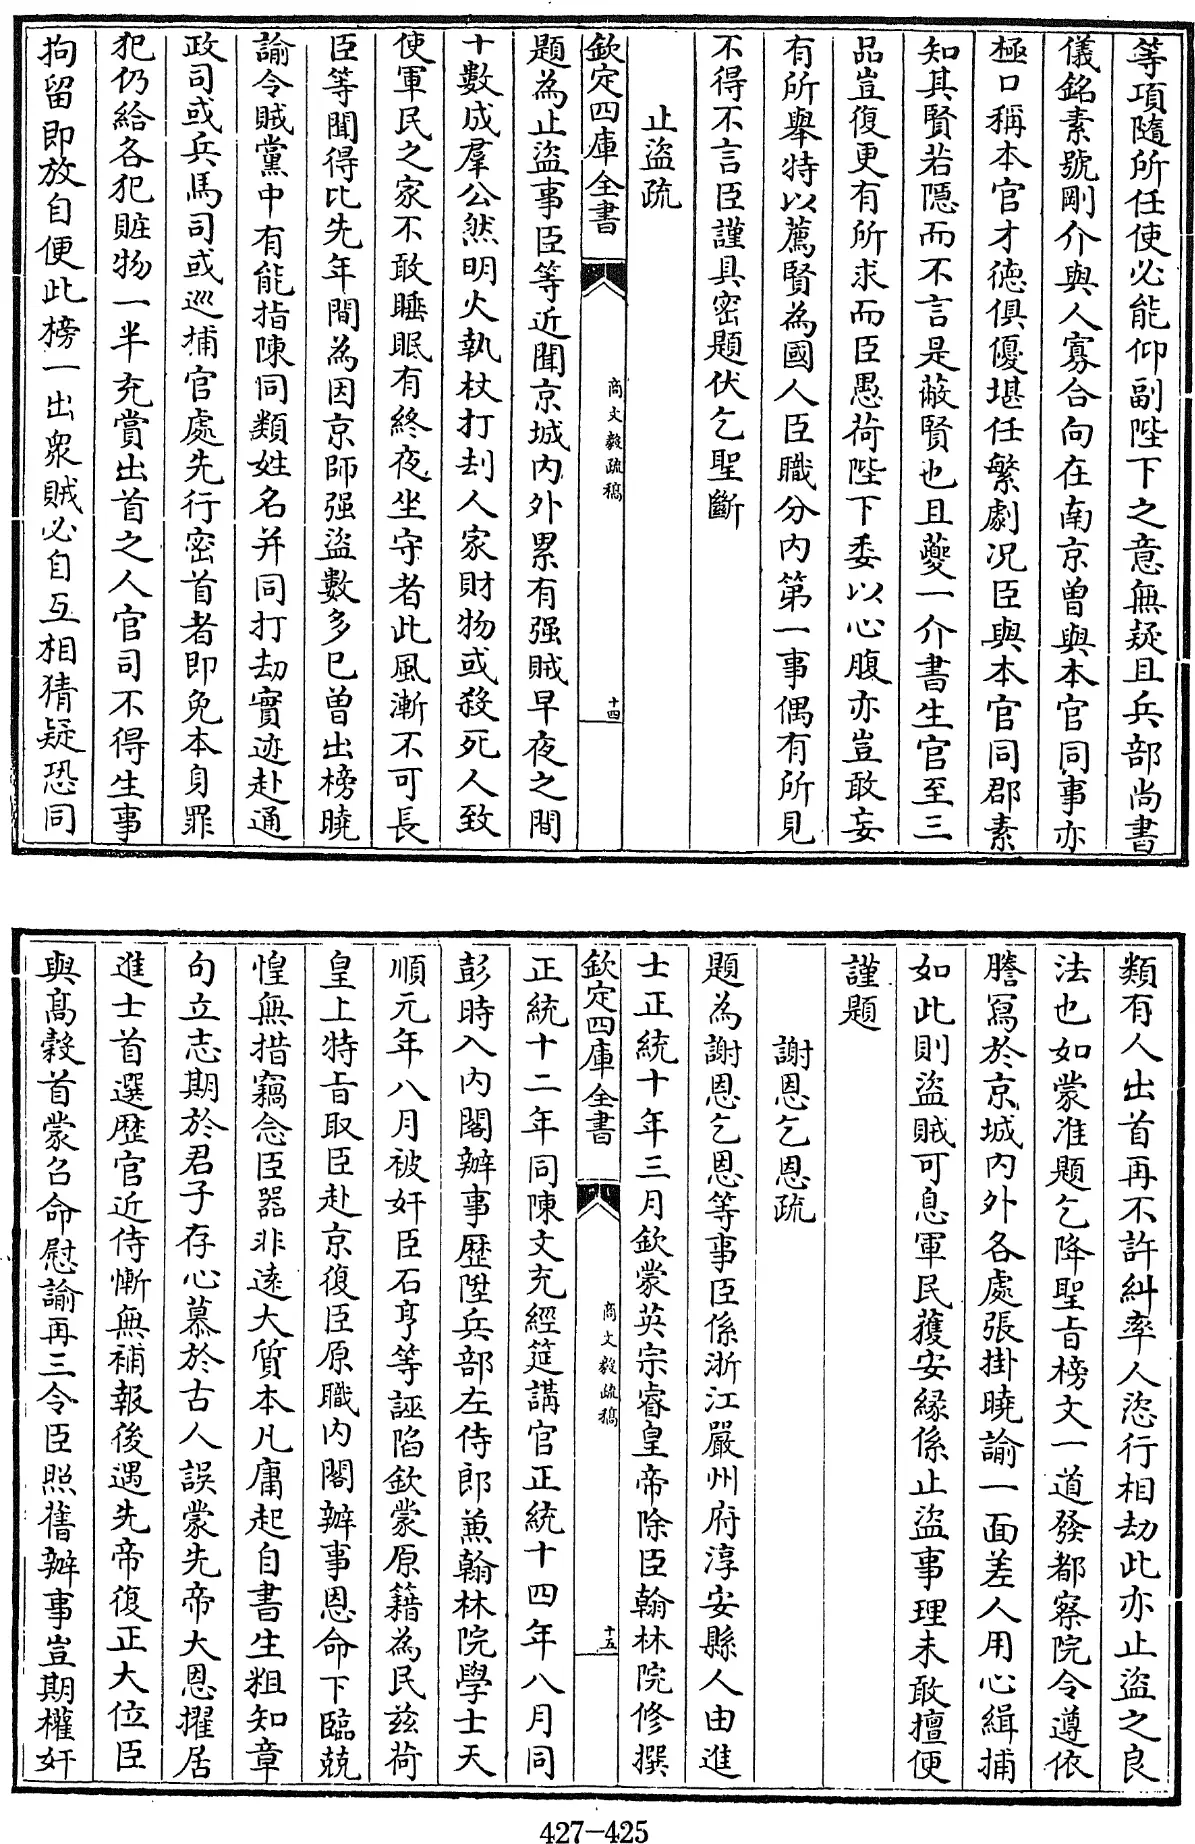 等項隨所任使必能仰副陛下之意無疑且兵部尚書
儀銘素號剛介與人寡合向在南京曾與本官同事亦
極口稱本官才德俱優堪任繁劇况臣與本官同郡素
知其賢若隱而不言是蔽賢也且夔一介書生官至三
品豈復更有所求而臣愚荷陛下委以心腹亦豈敢妄
有所舉特以薦賢為國人臣職分内第一事偶有所見
不得不言臣謹具密題伏乞聖斷
止盜疏
欽定四庫全書
商文毅疏稿
十四
題為止盜事臣等近聞京城内外累有强賊早夜之間
十數成羣公然明火執杖打刦人家財物或殺死人致
使軍民之家不敢睡眠有終夜坐守者此風漸不可長
臣等聞得比先年間為因京師强盜數多已曽出榜曉
諭令賊黨中有能指陳同類姓名并同打刼實迹赴通
政司或兵馬司或巡捕官處先行密首者即免本身罪
犯仍給各犯贓物一半充賞出首之人官司不得生事
拘留即放自便此榜一出衆賊必自互相猜疑恐同
類有人出首再不許糾率人恣行相刼此亦止盜之良
法也如蒙准題乞降聖旨榜文一道發都察院令遵依
謄寫於京城内外各處張掛曉諭一面差人用心緝捕
如此則盜賊可息軍民獲安緣係止盜事理未敢擅便
謹題
謝恩乞恩疏
題為謝恩乞恩等事臣係浙江嚴州府淳安縣人由進
士正統十年三月欽蒙英宗睿皇帝除臣翰林院修撰
欽定四庫全書
商文毅疏稿
十五
正統十二年同陳文充經筵講官正統十四年八月同
彭時入内閣辦事歷陞兵部左侍郎兼翰林院學士天
順元年八月被奸臣石亨等誣陷欽蒙原籍為民兹荷
皇上特旨取臣赴京復臣原職内閣辦事恩命下臨兢
惶無措竊念臣器非遠大質本凡庸起自書生粗知章
句立志期於君子存心慕於古人誤蒙先帝大恩擢居
進士首選歷官近侍慚無補報後遇先帝復正大位臣
與高穀首蒙召命慰諭再三令臣照舊辦事豈期權奸
427-425